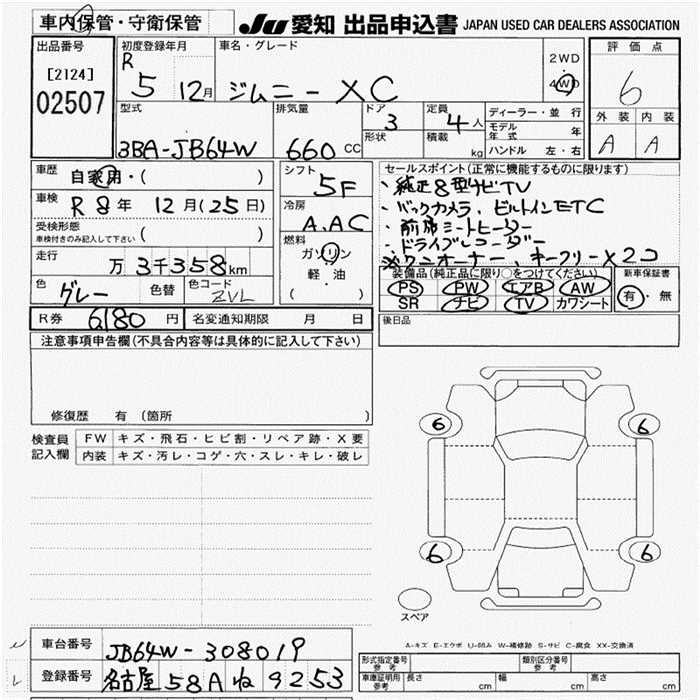 車内保管・守衛保管
JU 愛知 出品申込書 JAPAN USED CAR DEALERS ASSOCIATION
出品番号
[2124]
02507
初度登録年月
R 5 12月
車名・グレード
ジムニー XC
2WD
4WD
評価点
6
外装 内装
A A
型式
3BA-JB64W
排気量
660 CC
ドア 3
形状
定員 4 人
積載 kg
ディーラー・並行
モデル年式 年
ハンドル 左・右
車歴 自家用・( )
車検 R 8 年 12 月 (25 日)
受検形態
車検付きのみ記入して下さい ( )
走行 万 3千358km
色 グレー 色替 色コード ZVL
シフト 5F
冷房 A.AC
燃料
ガソリン
軽・油
( )
R券 6180 円 名変通知期限 月 日
セールスポイント(正常に機能するものに限ります)
・純正8型ナビTV
・バックカメラ、ビルトインETC
・前席シートヒーター
・ドライブレコーダー
※ワンオーナー、キーフリー×2コ
装備品(純正品に限り○をつけてください)
PS PW エアB AW
SR ナビ TV カワシート
新車保証書
有・無
後日品
注意事項申告欄(不具合内容等は具体的に記入して下さい)
修復歴 有 (箇所 )
検査員記入欄
FW キズ・飛石・ヒビ割・リペア跡・X要
内装 キズ・汚レ・コゲ・穴・スレ・キレ・破レ
6 6
6 6
スペア
A-キズ E-エクボ U-凹み W-補修跡 S-サビ C-腐食 XX-交換済
車台番号 JB64W-308019
登録番号 名古屋 58A ね 9253
型式指定番号 参考 類別区分番号 参考
車庫証明用 参考 長さ cm 幅 cm 高さ cm